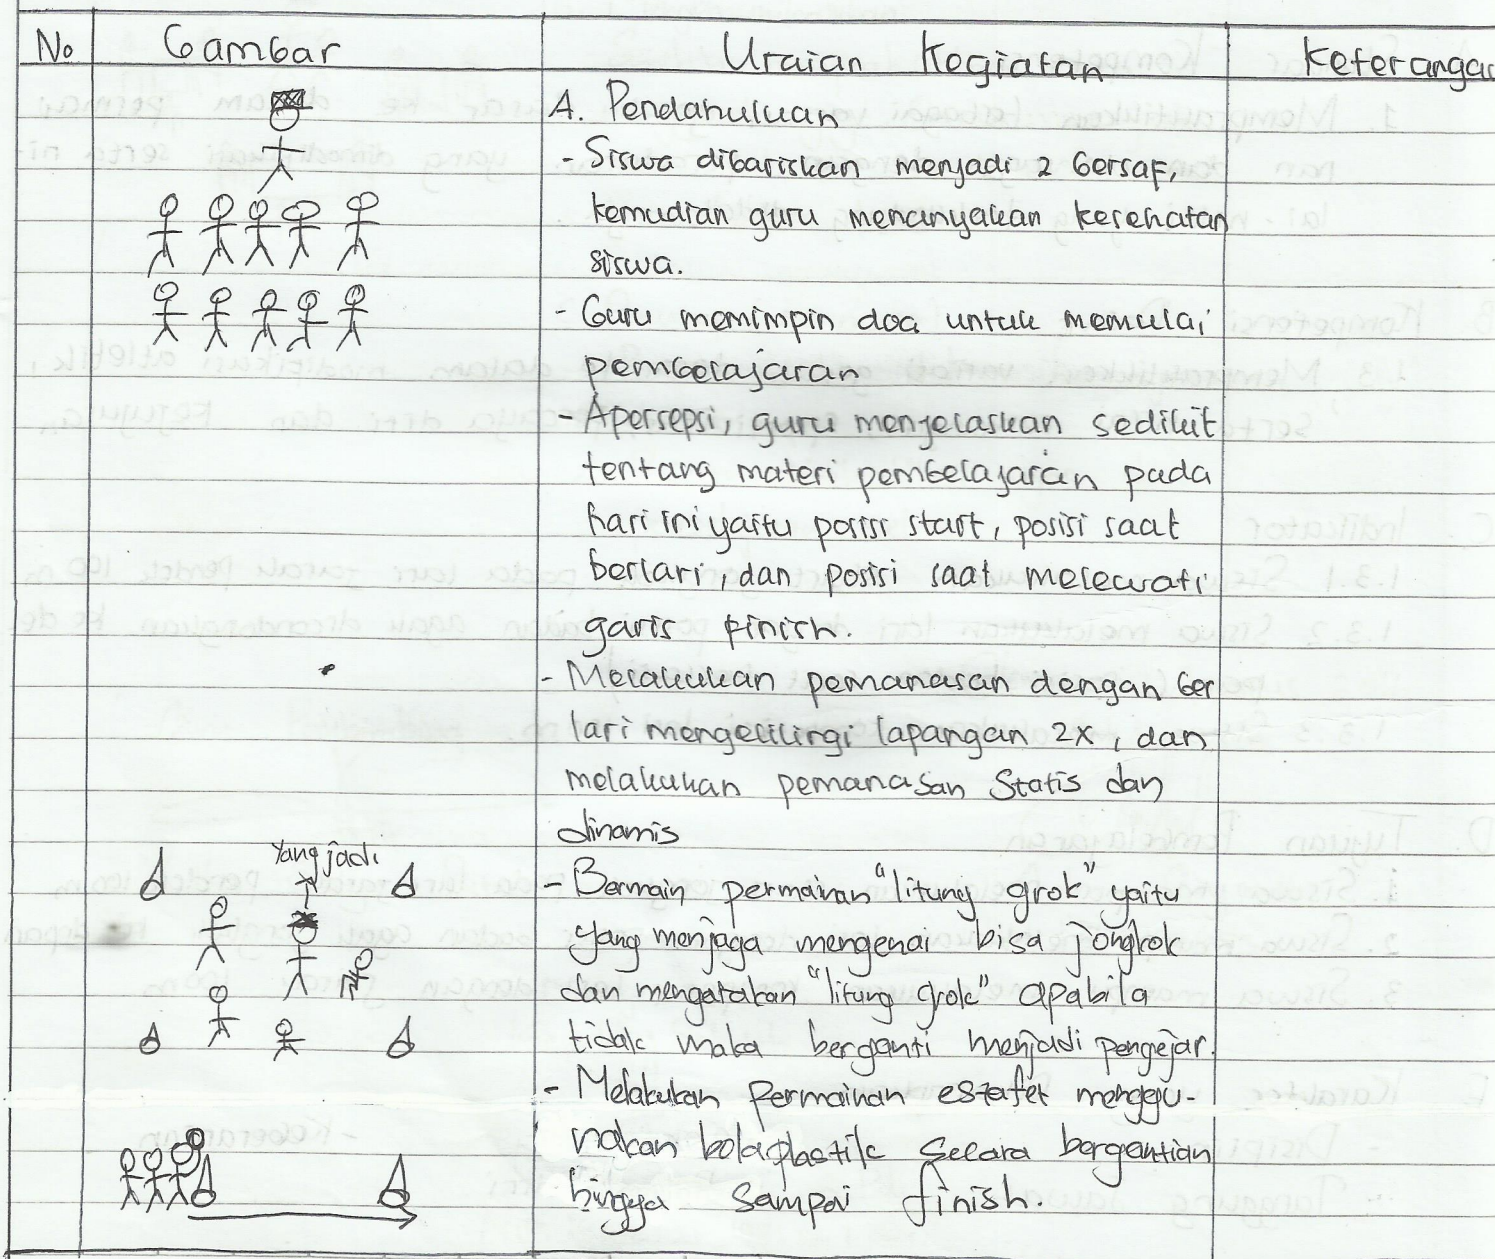 No Gambar Uraian Kegiatan Keterangan
A. Pendahuluan
- Siswa dibariskan menjadi 2 bersaf,
kemudian guru menanyakan kesehatan
siswa.
- Guru memimpin doa untuk memulai
pembelajaran
- Apersepsi, guru menjelaskan sedikit
tentang materi pembelajaran pada
hari ini yaitu posisi start, posisi saat
berlari, dan posisi saat melewati
garis finish.
- Melakukan pemanasan dengan ber
lari mengelilingi lapangan 2x, dan
melakukan pemanasan Statis dan
dinamis
Yang jadi
- Bermain permainan "litung grok" yaitu
yang menjaga mengenai bisa jongkok
dan mengatakan "litung grok" apabila
tidak maka berganti menjadi pengejar.
- Melakukan permainan estafet menggu-
nakan bola plastik secara bergantian
hingga sampai finish.